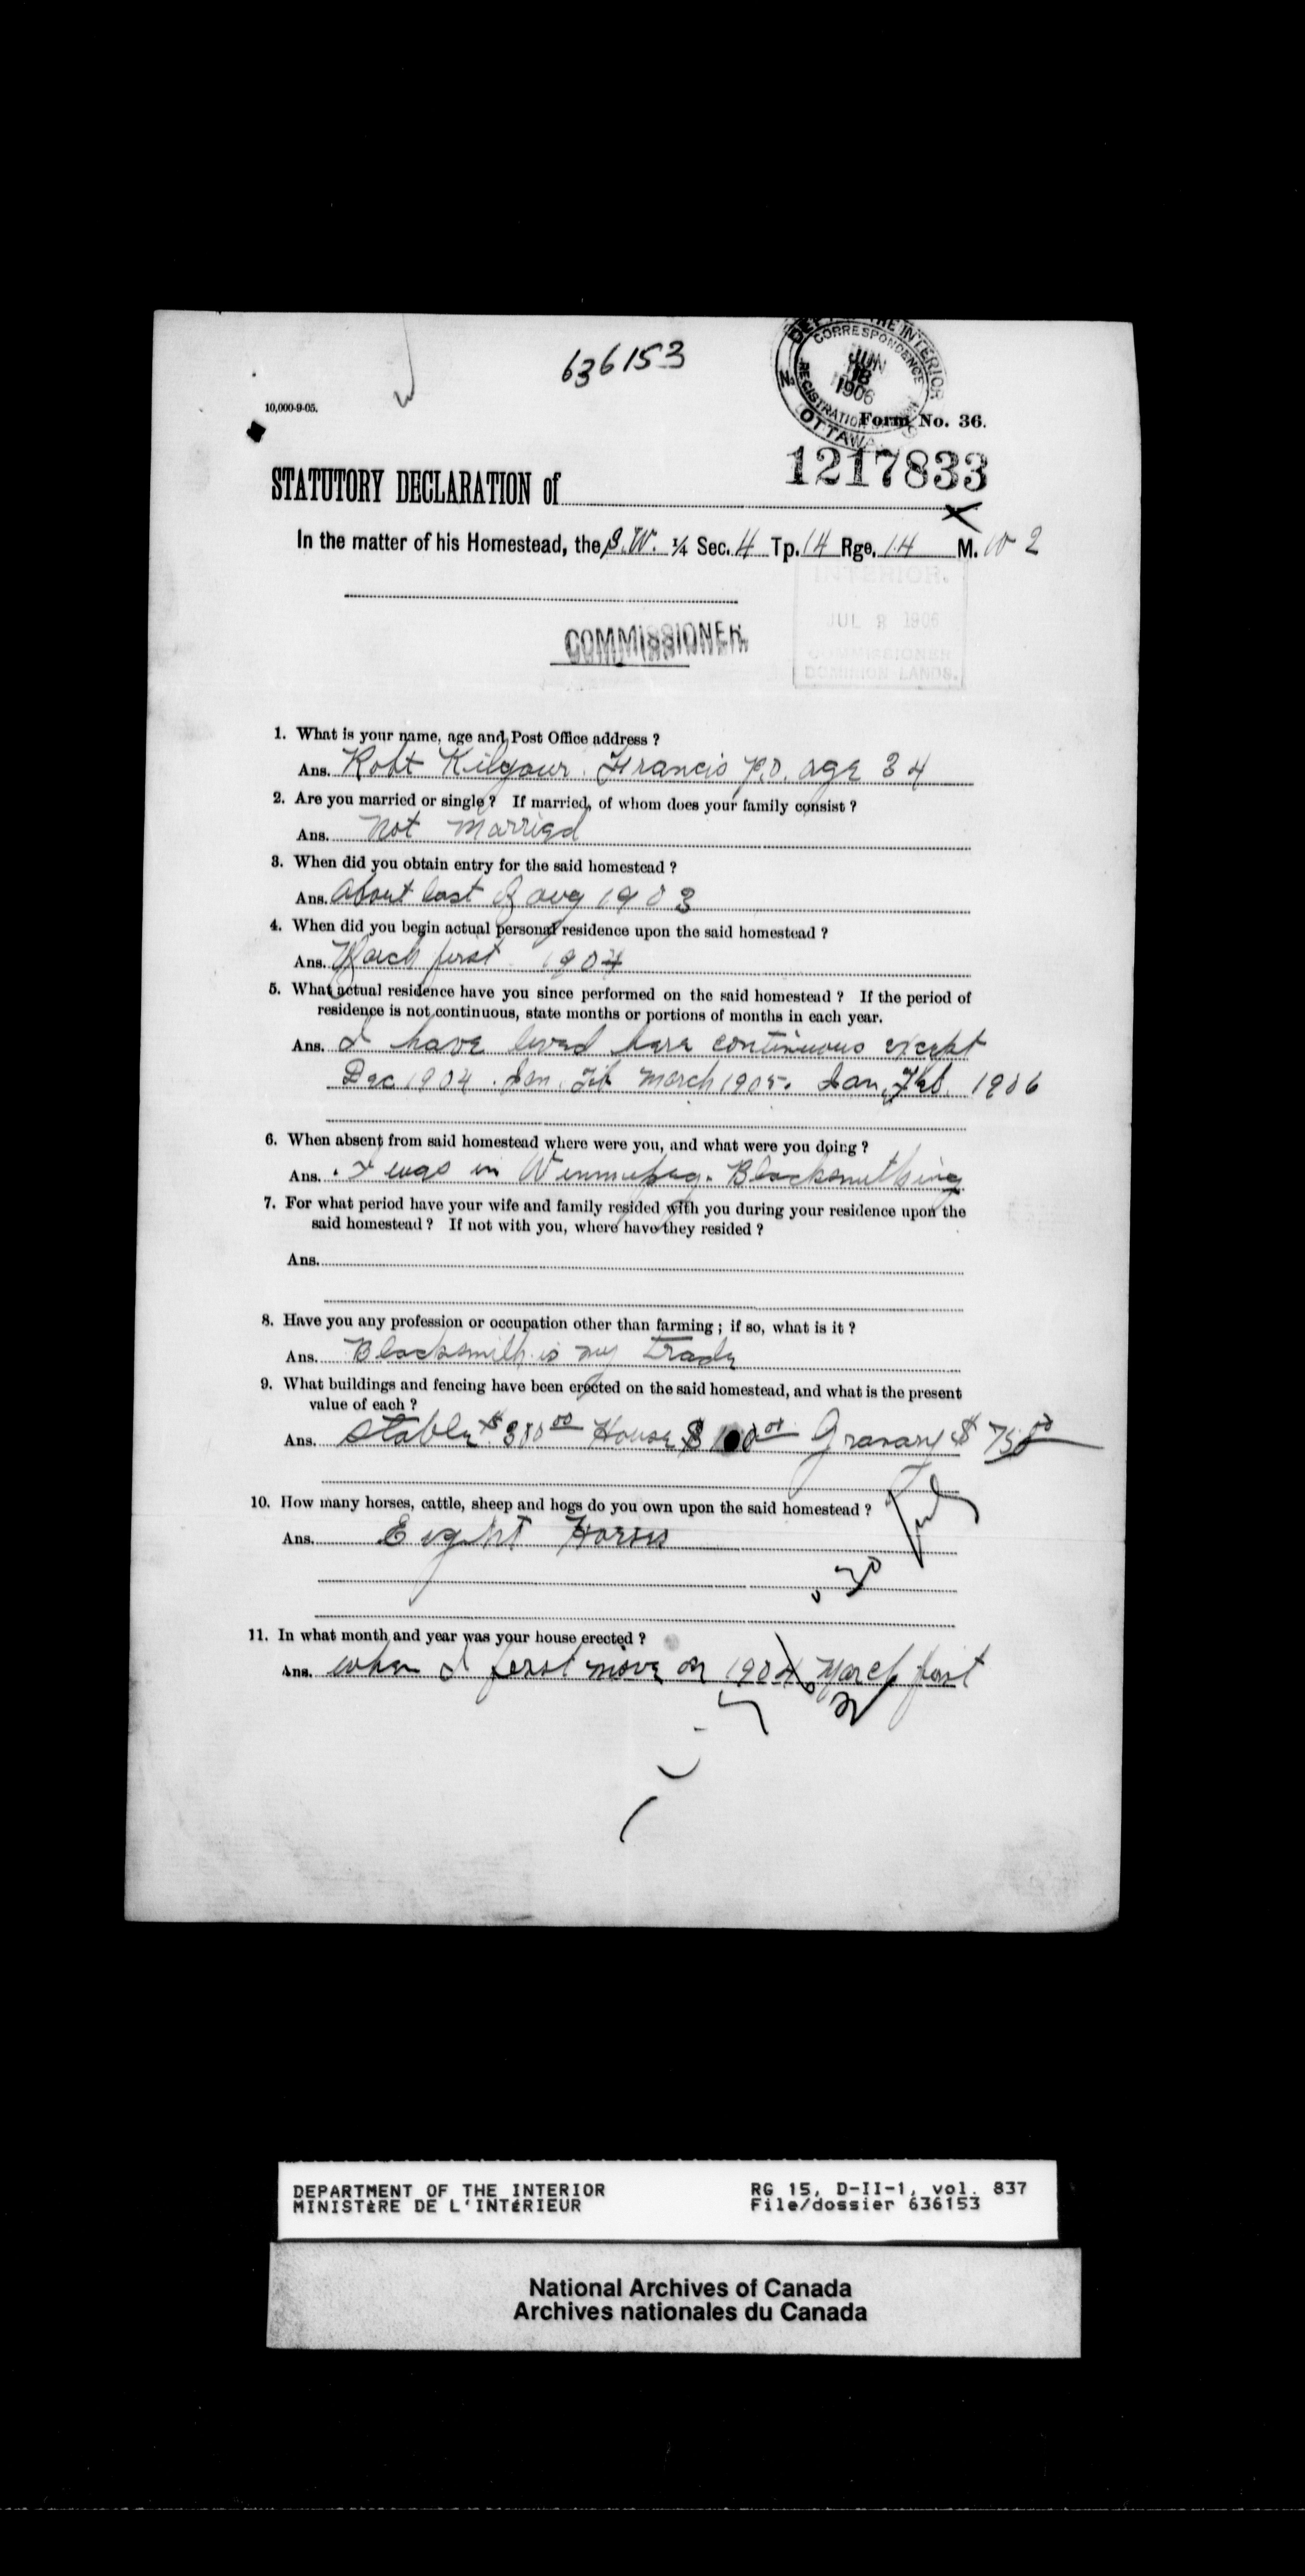 636153
DEPT OF THE INTERIOR
CORRESPONDENCE
JUN
18
1906
REGISTRATION
OTTAWA
10,000-9-05.
Form No. 36.
1217833
STATUTORY DECLARATION of
In the matter of his Homestead, the S.W. ¼ Sec. 4 Tp. 14 Rge. 14 M. W 2
INTERIOR.
JUL 1906
COMMISSIONER
DOMINION LANDS.
COMMISSIONER.
1. What is your name, age and Post Office address ?
Ans. Robt Kilgour. Francis P.O. age 34
2. Are you married or single ? If married, of whom does your family consist ?
Ans. Not married
3. When did you obtain entry for the said homestead ?
Ans. About last of aug 1903
4. When did you begin actual personal residence upon the said homestead ?
Ans. March first 1904
5. What actual residence have you since performed on the said homestead ? If the period of
residence is not continuous, state months or portions of months in each year.
Ans. I have lived here continuous except
Dec 1904. Jan. Feb March 1905. Jan, Feb. 1906
6. When absent from said homestead where were you, and what were you doing ?
Ans. I was in Winnipeg. Blacksmithing
7. For what period have your wife and family resided with you during your residence upon the
said homestead ? If not with you, where have they resided ?
Ans.
8. Have you any profession or occupation other than farming ; if so, what is it ?
Ans. Blacksmith is my trade
9. What buildings and fencing have been erected on the said homestead, and what is the present
value of each ?
Ans. Stable $300 00 House $ 100 00 Granary $ 75 00
10. How many horses, cattle, sheep and hogs do you own upon the said homestead ?
Ans. Eight Horses
11. In what month and year was your house erected ?
Ans. when I first move on 1904 March first
DEPARTMENT OF THE INTERIOR RG 15, D-II-1, vol. 837
MINISTÈRE DE L'INTÉRIEUR File/dossier 636153
National Archives of Canada
Archives nationales du Canada